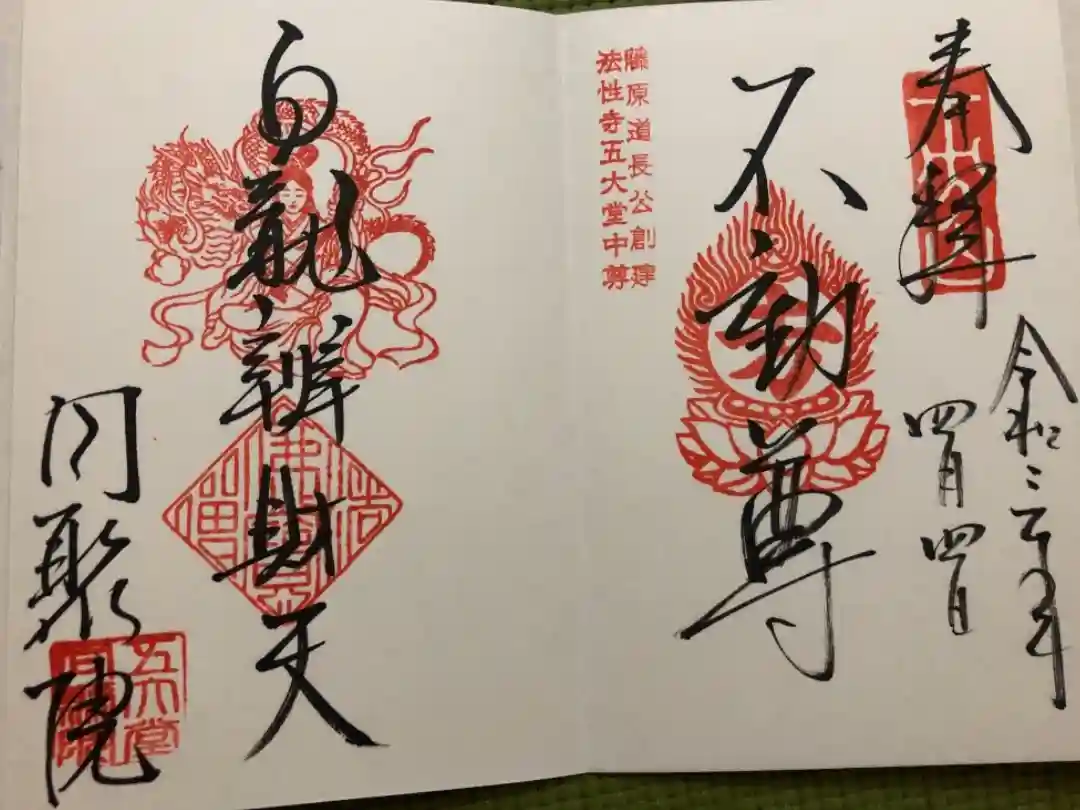 奉拝
令和三年
四月四日
不動尊
藤原道長公創建
法性寺五大堂中尊
白龍辨財天
同聚院
五大堂